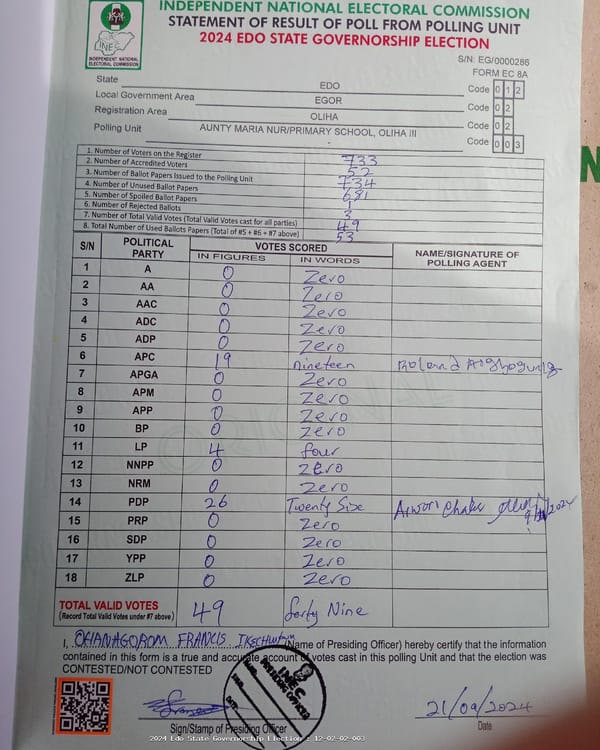 INDEPENDENT NATIONAL ELECTORAL COMMISSION
STATEMENT OF RESULT OF POLL FROM POLLING UNIT
2024 EDO STATE GOVERNORSHIP ELECTION
INEC
INDEPENDENT NATIONAL
ELECTORAL COMMISSION
S/N: EG/0000286
FORM EC 8A
State EDO Code 0 1 2
Local Government Area EGOR Code 0 2
Registration Area OLIHA Code 0 2
Polling Unit AUNTY MARIA NUR/PRIMARY SCHOOL, OLIHA III Code 0 0 3
1. Number of Voters on the Register 733
2. Number of Accredited Voters 52
3. Number of Ballot Papers Issued to the Polling Unit 734
4. Number of Unused Ballot Papers 681
5. Number of Spoiled Ballot Papers 1
6. Number of Rejected Ballots 3
7. Number of Total Valid Votes (Total Valid Votes cast for all parties) 49
8. Total Number of Used Ballots Papers (Total of #5 + #6 + #7 above) 53
S/N POLITICAL PARTY VOTES SCORED NAME/SIGNATURE OF POLLING AGENT
IN FIGURES IN WORDS
1 A 0 Zero
2 AA 0 Zero
3 AAC 0 Zero
4 ADC 0 Zero
5 ADP 0 Zero
6 APC 19 nineteen Roland
7 APGA 0 Zero
8 APM 0 Zero
9 APP 0 Zero
10 BP 0 Zero
11 LP 4 four
12 NNPP 0 Zero
13 NRM 0 Zero
14 PDP 26 Twenty Size
15 PRP 0 Zero
16 SDP 0 Zero
17 YPP 0 Zero
18 ZLP 0 Zero
TOTAL VALID VOTES 49 forty Nine
(Record Total Valid Votes under #7 above)
ORIGINAL
I, OKHANAGOROM FRANCIS (Name of Presiding Officer) hereby certify that the information
contained in this form is a true and accurate account of votes cast in this polling Unit and that the election was
CONTESTED/NOT CONTESTED
INEC
PRESIDING OFFICER
21/09/2024
Sign/Stamp of Presiding Officer Date
2024 Edo State Governorship Election : 12-02-02-003
N